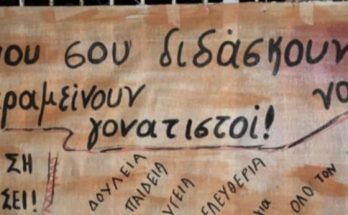 που σου διδάσκουν
παραμείνουν να
γονατιστοί!
ΣΗ
ΣΕΙ!
ΔΟΥΛΕΙΑ
ΠΑΙΔΕΙΑ
ΥΓΕΙΑ
ΕΛΕΥΘΕΡΙΑ
ΟΛΟ ΤΟΝ